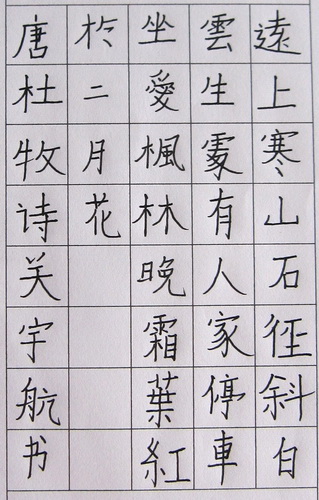 遠上寒山石徑斜白
雲生處有人家停車
坐愛楓林晚霜葉紅
於二月花
唐杜牧诗关宇航书